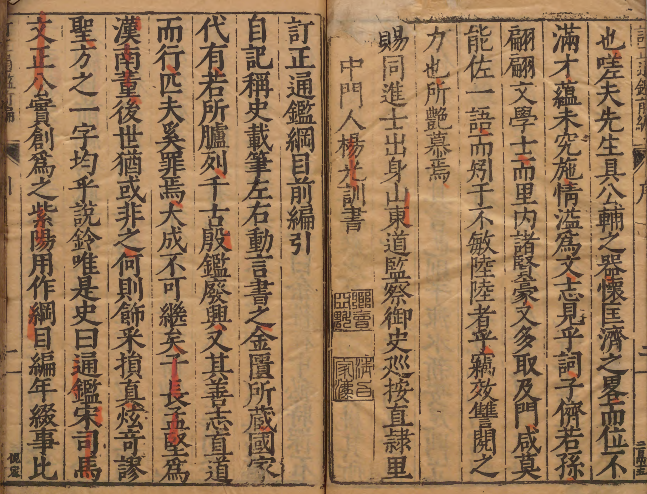 也嗟夫先生具公輔之器懷匡濟之畧而位不
滿才蘊未究施情溢為文志見乎詞子儕若孫
翩翩文學士而里内諸賢豪又多取及門咸莫
能佐一語而矧于不敏陸陸者乎竊效讐閱之
力也所艷慕焉
賜同進士出身山東道監察御史巡按直隸里
中門人楊光訓書
訂正通鑑綱目前編引
自記稱史載筆左右動言書之金匱所藏國家
代有若所臚列千古殷鑑廢興又其善志直道
而行匹夫奚罪焉大成不可繼矣子長孟堅為
漢南董後世猶或非之何則飾釆損真炫奇謬
聖方之一字均乎說鈴唯是史曰通鑑宋司馬
文正公實創為之紫陽用作綱目編年綴事比